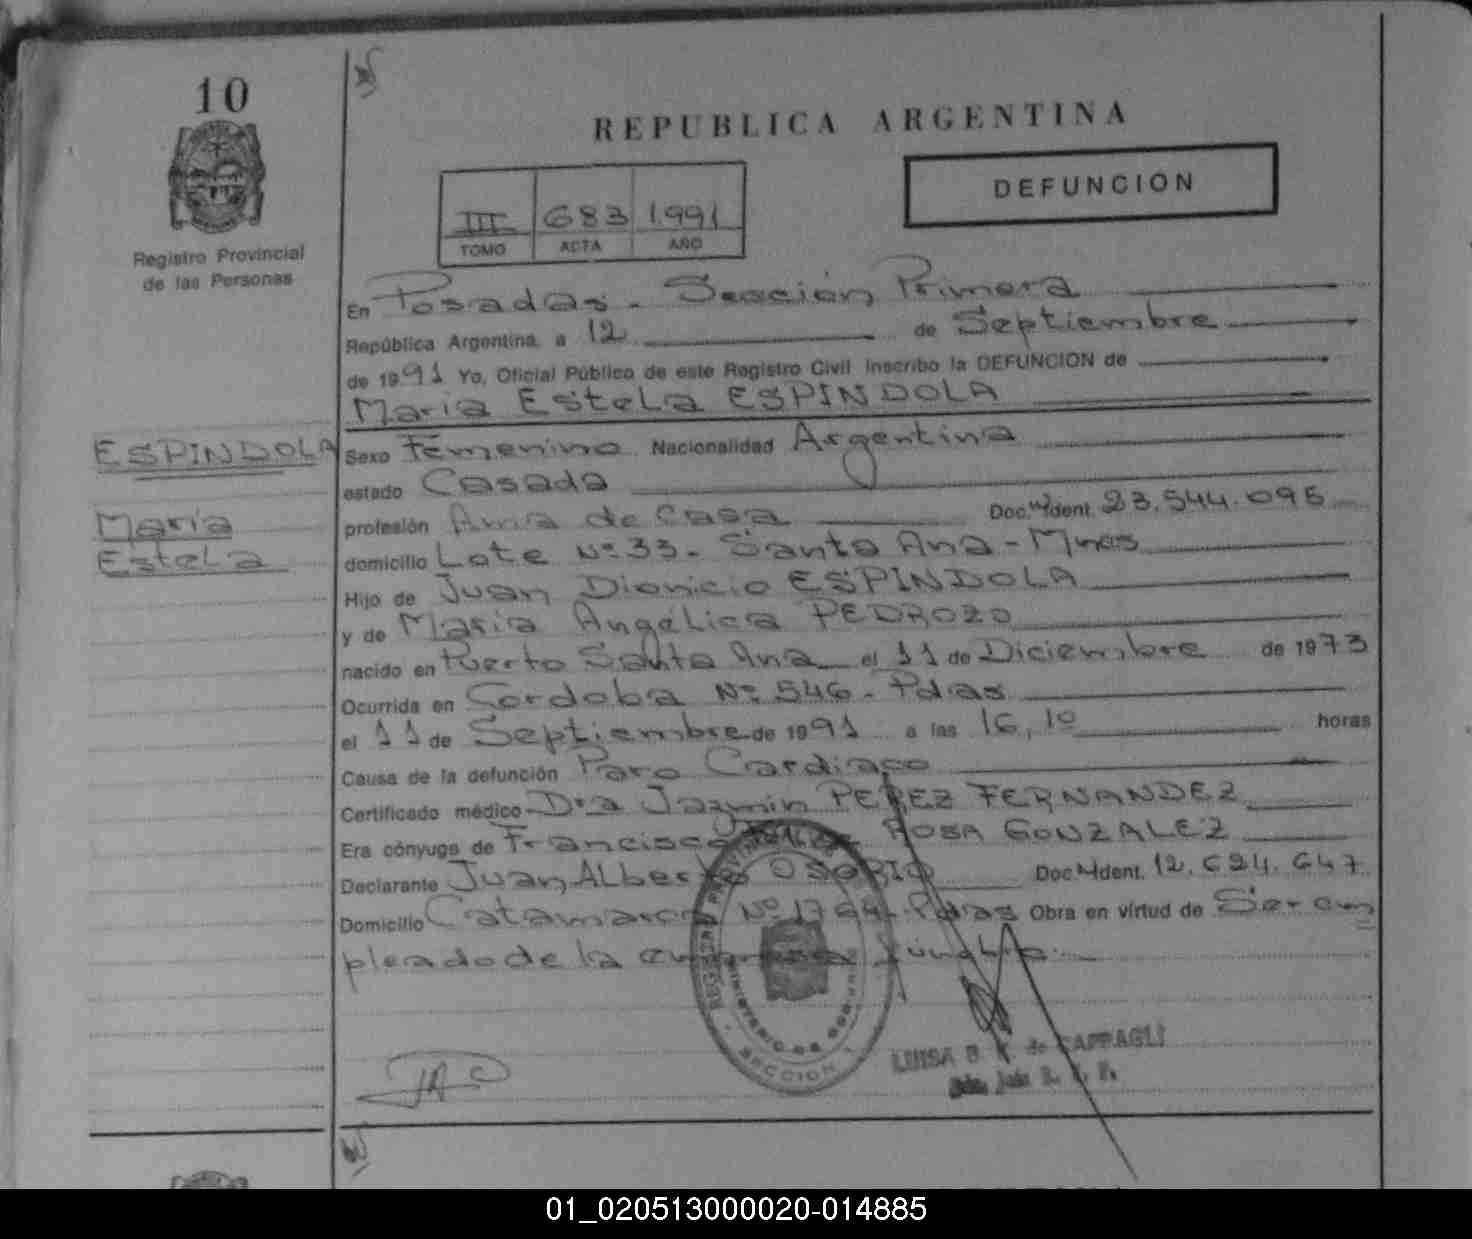 10
REPUBLICA ARGENTINA
DEFUNCION
III 683 1.991
TOMO ACTA AÑO
Registro Provincial
de las Personas
En Posadas - Sección Primera
República Argentina, a 12 de Septiembre
de 1991 Yo, Oficial Público de este Registro Civil inscribo la DEFUNCION de
Maria Estela ESPINDOLA
ESPINDOLA
Maria
Estela
Sexo Femenino Nacionalidad Argentina
estado Casada
profesión Ama de Casa Doc. Ident. 23.544.095
domicilio Lote Nº 33 - Santa Ana - Mnes
Hijo de Juan Dionicio ESPINDOLA
y de Maria Angélica PEDROZO
nacido en Puerto Santa Ana el 11 de Diciembre de 1973
Ocurrida en Cordoba Nº 546 - Pdas
el 11 de Septiembre de 1991 a las 16,10 horas
Causa de la defunción Paro Cardiaco
Certificado médico Dra Jazmin PEREZ FERNANDEZ
Era cónyuge de Francisco ROSA GONZALEZ
Declarante Juan Alberto OSORIO Doc. Ident. 12.624.647
Domicilio Catamarca Nº 1764 - Pdas Obra en virtud de Ser em
pleado de la empresa fúnebre
REGISTRO PROVINCIAL
MINISTERIO DE GOBIERNO
SECCION 1
LUISA B. K. de CAFFAGLI
01_020513000020-014885